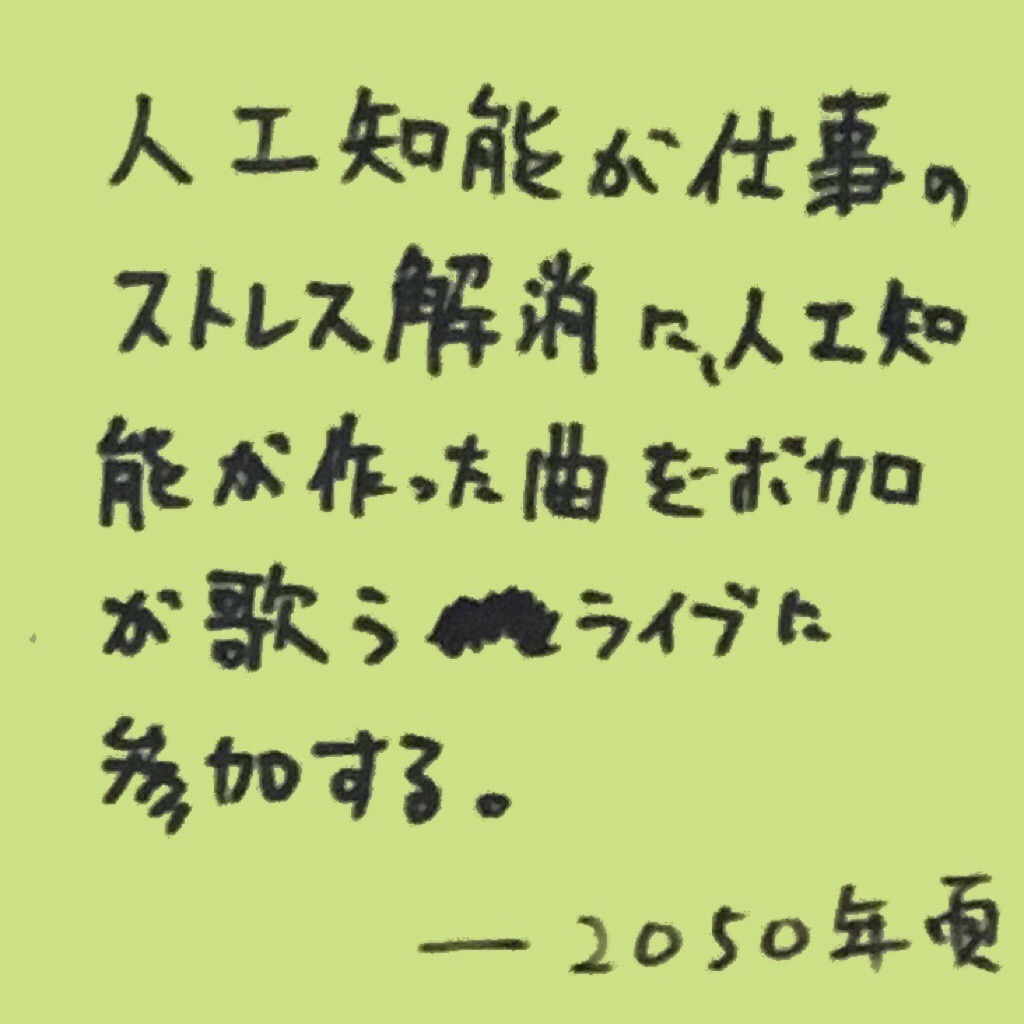 人工知能が仕事の
ストレス解消に、人工知
能が作った曲をボカロ
が歌うライブに
参加する。
— 2050年頃